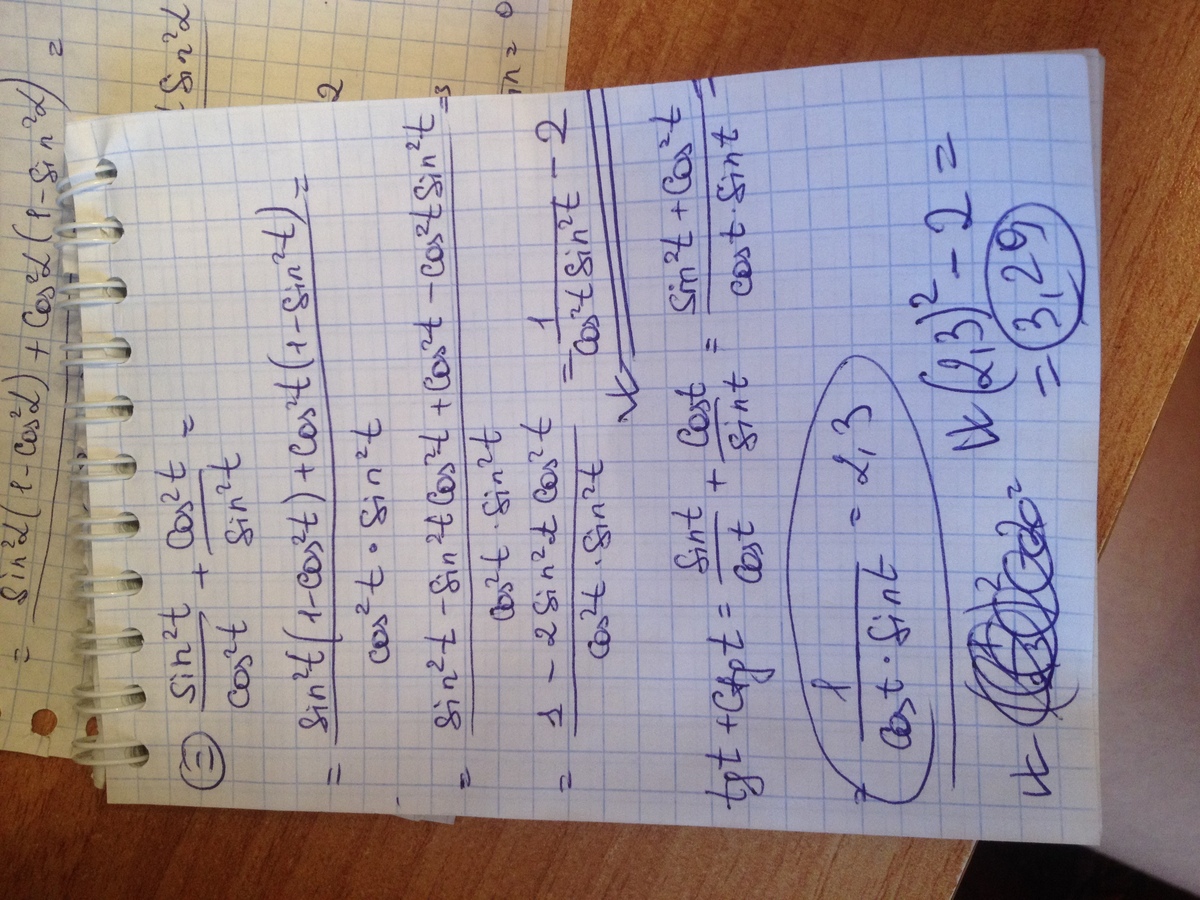 = sin²α(1-cos²α) + cos²α(1-sin²α) =
sin²α
= 0
2
⊜ sin²t/cos²t + cos²t/sin²t =
= (sin²t(1-cos²t) + cos²t(1-sin²t))/(cos²t · sin²t) =
= (sin²t - sin²t cos²t + cos²t - cos²t sin²t)/(cos²t · sin²t) =
= (1 - 2 sin²t cos²t)/(cos²t · sin²t) = 1/(cos²t sin²t) - 2
tg t + ctg t = sin t/cos t + cos t/sin t = (sin²t + cos²t)/(cos t · sin t) =
= 1/(cos t · sin t) = 2,3
(2,3)² - 2 =
= 3,29